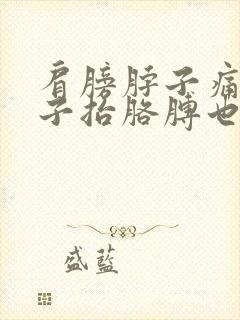 肩膀脖子痛
子抬胳膊也
盛蓝